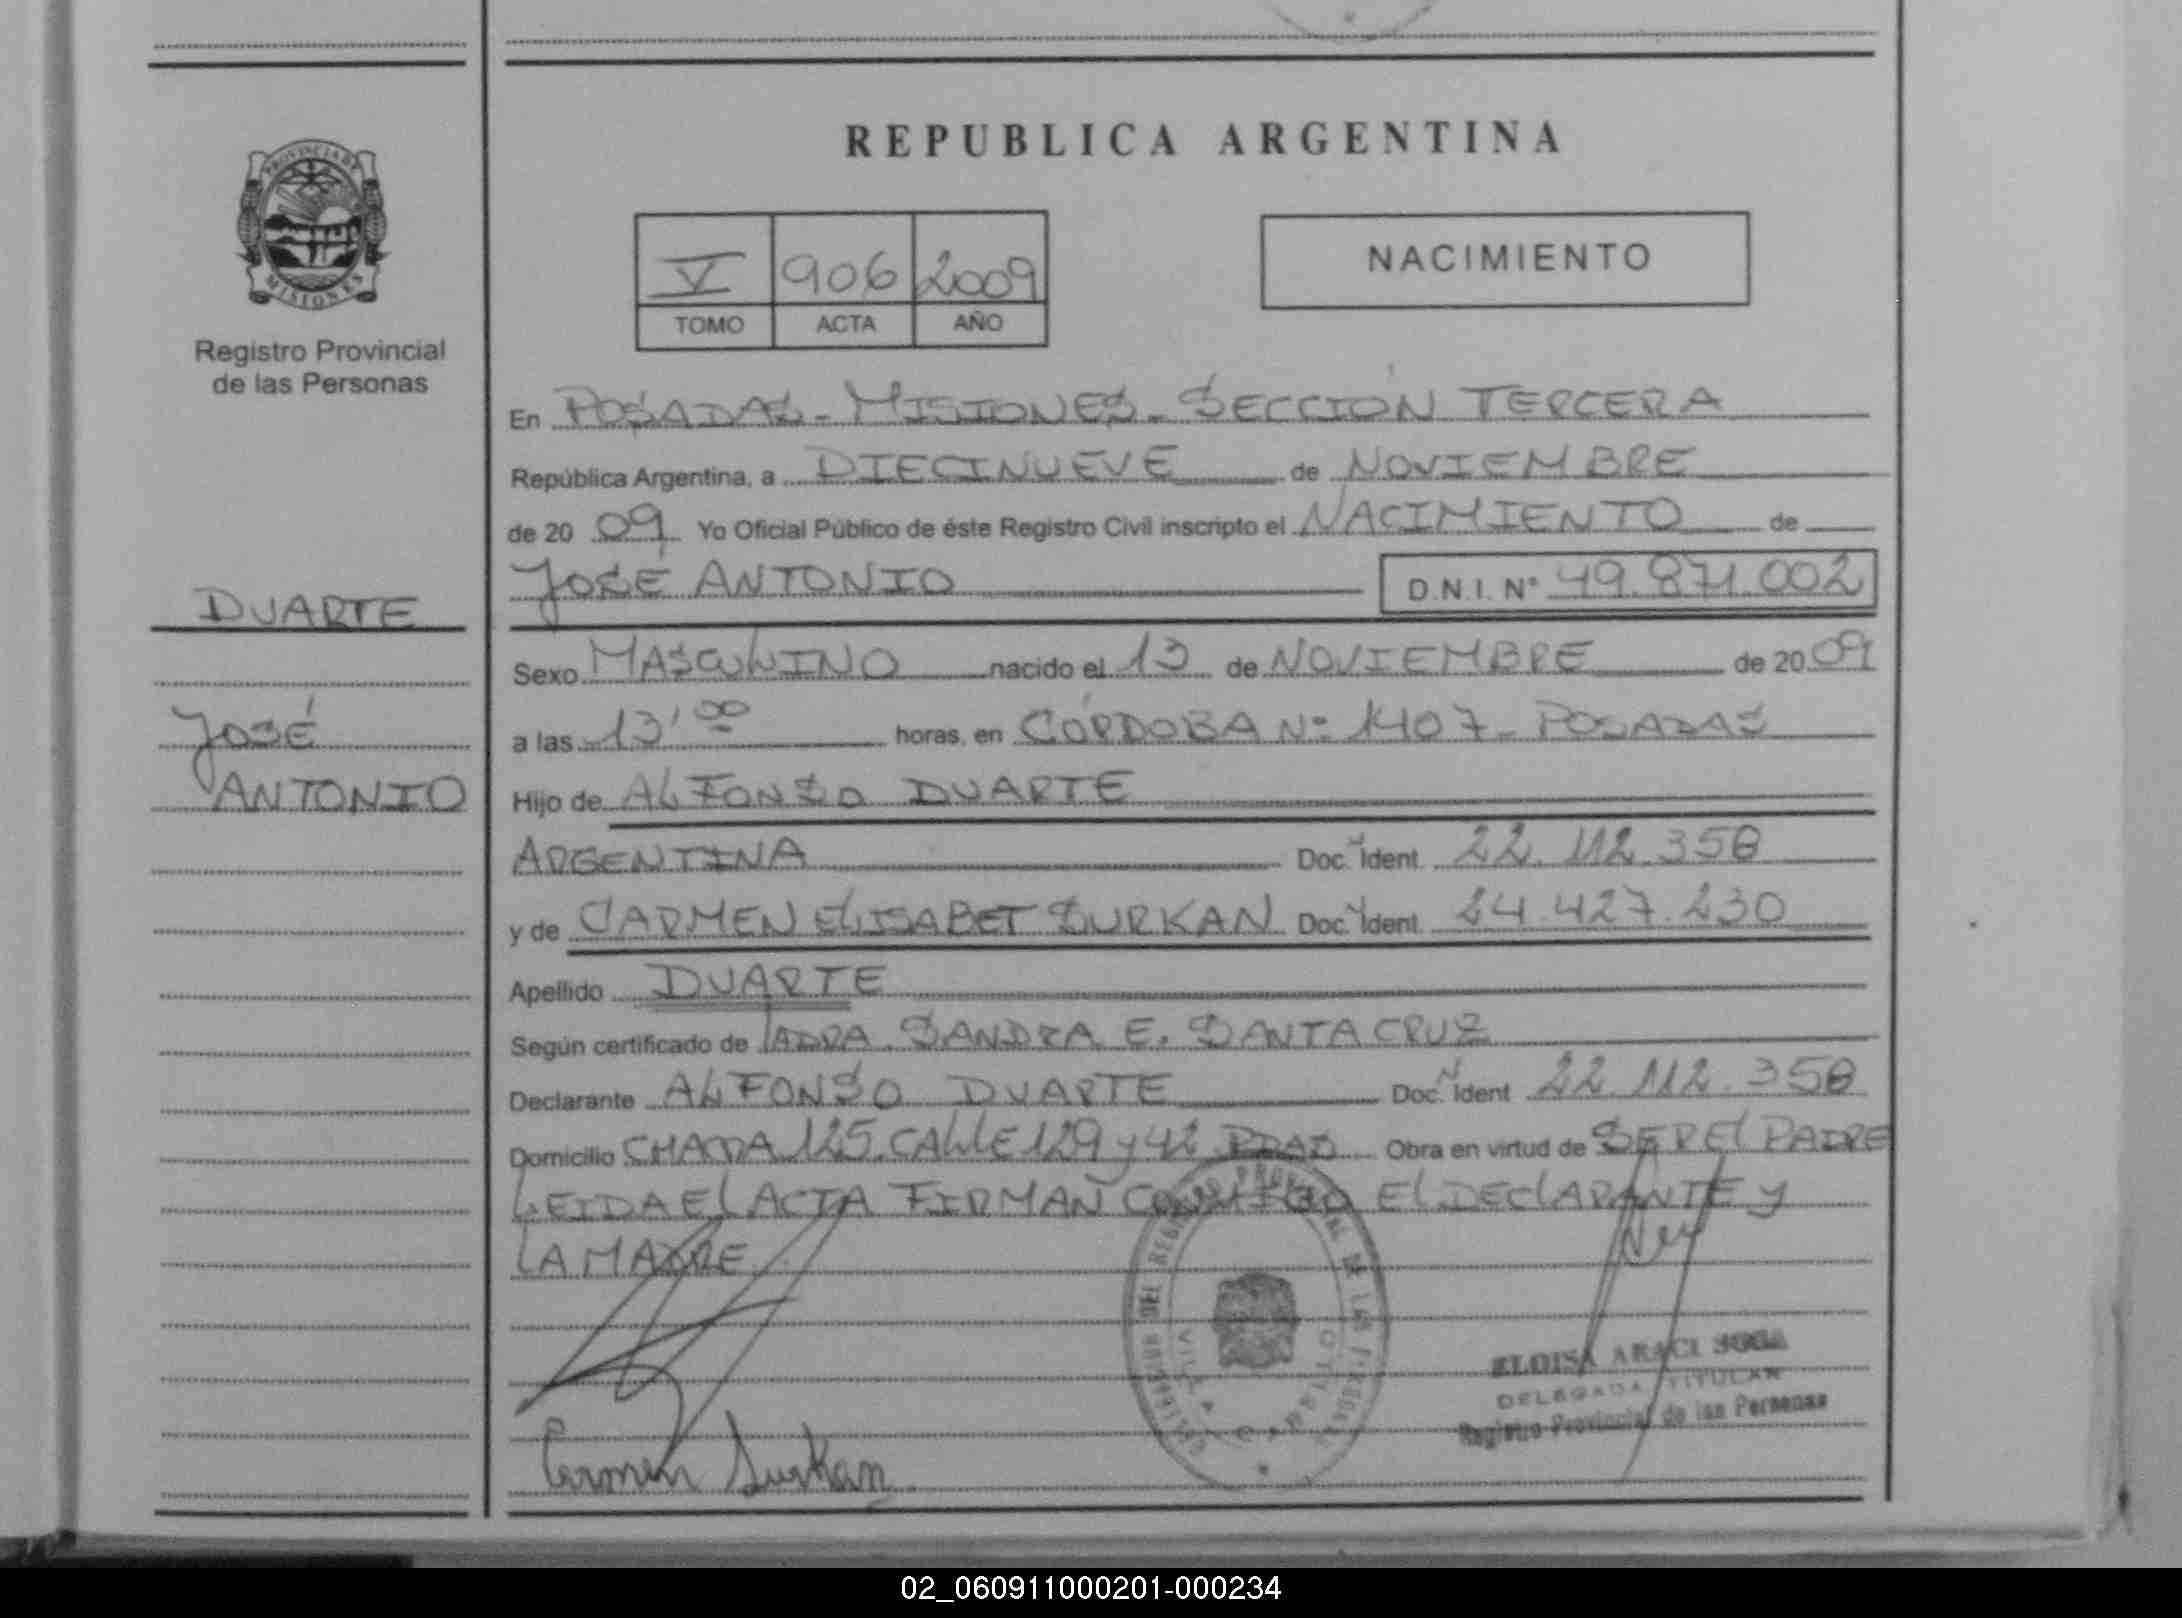 REPUBLICA ARGENTINA
PROVINCIA DE
MISIONES
Registro Provincial
de las Personas
V 906 2009
TOMO ACTA AÑO
NACIMIENTO
En POSADAS - MISIONES - SECCIÓN TERCERA
República Argentina, a DIECINUEVE de NOVIEMBRE
de 20 09 Yo Oficial Público de éste Registro Civil inscripto el NACIMIENTO de
JOSÉ ANTONIO D.N.I. Nº 49.871.002
DUARTE
JOSÉ
ANTONIO
Sexo MASCULINO nacido el 13 de NOVIEMBRE de 20 09
a las 13'00 horas, en CÓRDOBA Nº 1407 - POSADAS
Hijo de ALFONSO DUARTE
ARGENTINA Doc. Ident. 22.112.358
y de CARMEN ELISABET SURKAN Doc. Ident. 24.427.230
Apellido DUARTE
Según certificado de SANDRA E. SANTACRUZ
Declarante ALFONSO DUARTE Doc. Ident 22.112.358
Domicilio CHACRA 125. CALLE 129 y 42 PDAS Obra en virtud de SER El PADRE
LEIDA El ACTA FIRMAN CONMIGO El DEClARANTE y
LA MADRE
DEL REGISTRO PROVINCIAL DE LAS PERSONAS
VILLA CABELLO
ELOISA ARACI SOSA
DELEGADA TITULAR
Registro Provincial de las Personas
Carmen Surkan
02_060911000201-000234